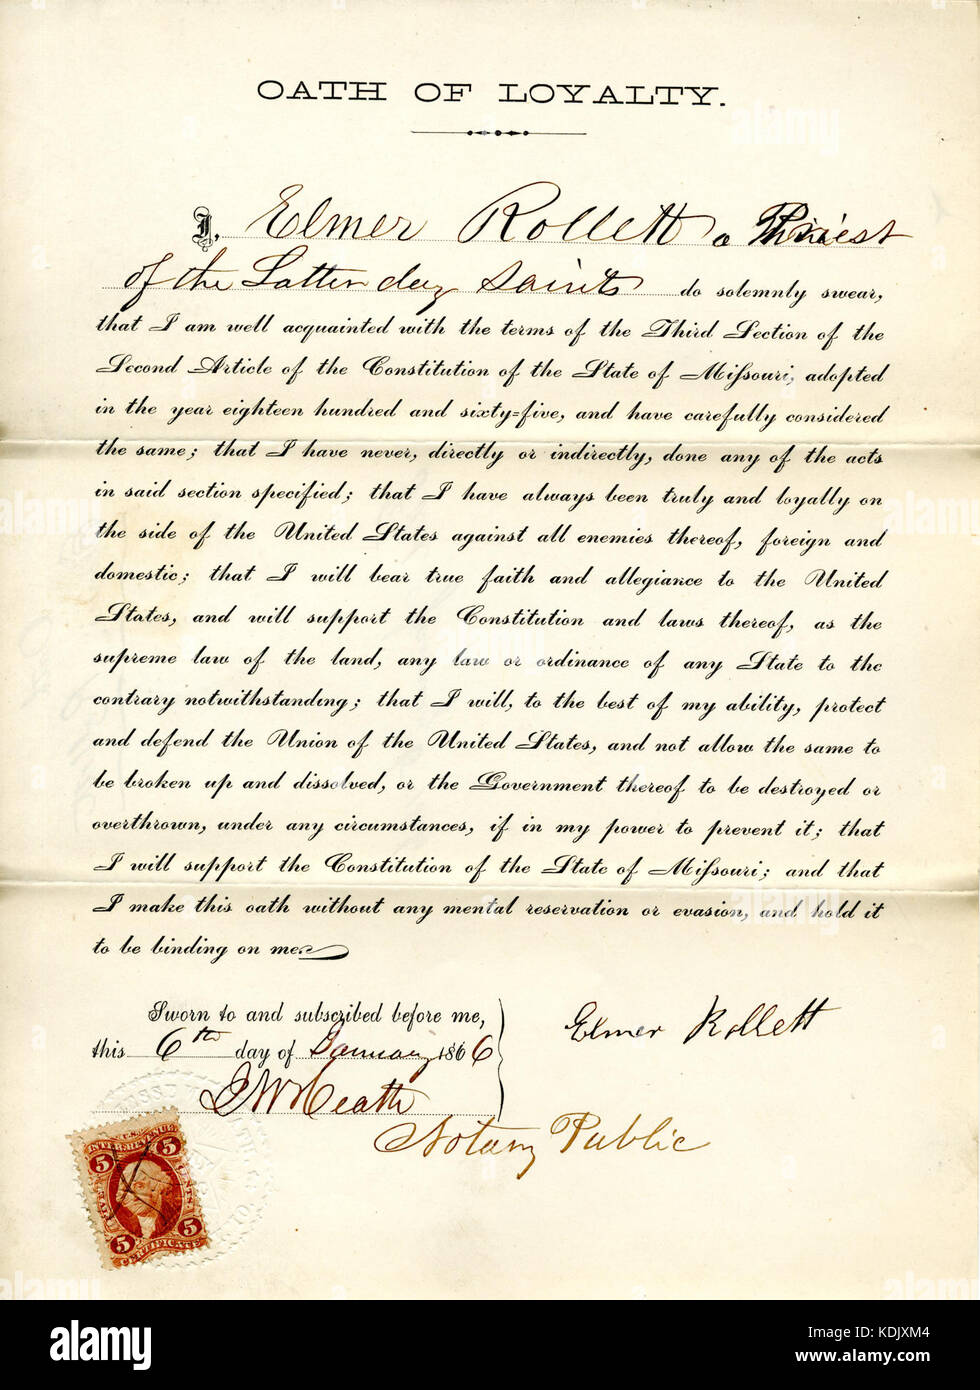 OATH OF LOYALTY.
I, Elmer Rollett a Priest
of the Latter day Saints do solemnly swear,
that I am well acquainted with the terms of the Third Section of the
Second Article of the Constitution of the State of Miſsouri, adopted
in the year eighteen hundred and sixty=five, and have carefully considered
the same; that I have never, directly or indirectly, done any of the acts
in said section specified; that I have always been truly and loyally on
the side of the United States against all enemies thereof, foreign and
domestic; that I will bear true faith and allegiance to the United
States, and will support the Constitution and laws thereof, as the
supreme law of the land, any law or ordinance of any State to the
contrary notwithstanding; that I will, to the best of my ability, protect
and defend the Union of the United States, and not allow the same to
be broken up and dissolved, or the Government thereof to be destroyed or
overthrown, under any circumstances, if in my power to prevent it; that
I will support the Constitution of the State of Miſsouri; and that
I make this oath without any mental reservation or evasion, and hold it
to be binding on me.
Sworn to and subscribed before me,
this 6th day of January 1866
Elmer Rollett
Heath
Notary Public
U.S.
INTER. REVENUE
5 5
FIVE CENTS
5 5
CERTIFICATE
alamy
Image ID: KDJXM4
www.alamy.com